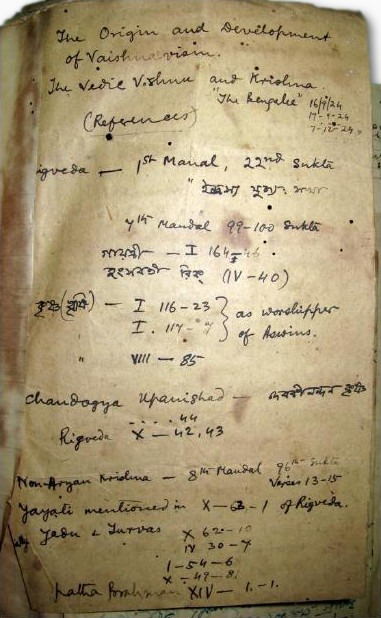 The Origin and Development
of Vaishnavism.
The Vedic Vishnu and Krishna.
"The Bengalee" 16/9/24
17-9-24
7-12-24,
(References)
Rigveda — 1st Manal, 22nd Sukta
"
7th Mandal 99-100 Sukta
গায়ত্রী — I 164-46
হংসবতী রিক্ (IV-40)
কৃষ্ণ (ঋষি) — I 116-23 } as worshipper
I. 117-7 } of Aswins.
" VIII — 85
Chandogya Upanishad — দেবকীনন্দন কৃষ্ণ
44
Rigveda X — 42, 43
Non-Aryan Krishna — 8th Mandal 96th Sukta
Verses 13-15
Yayati mentioned in X-63-1 of Rigveda.
Jadu & Turvas X 62-10
IV 30-7
1-54-6
X-49-8.
Satha Brahman XIV — 1.-1.